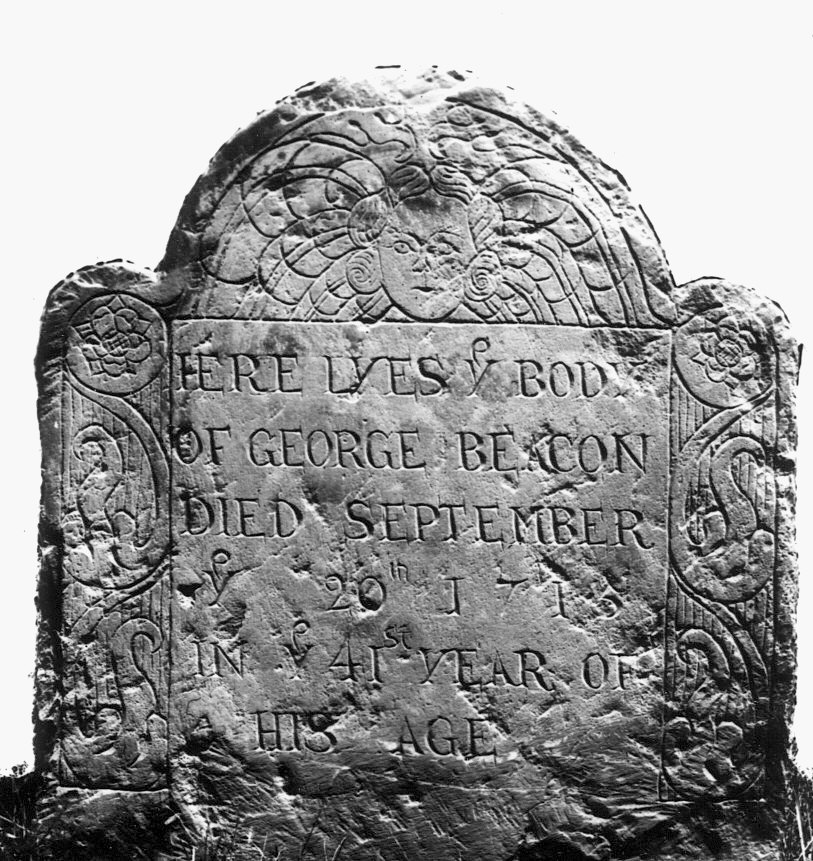 HERE LYES yᵉ BODY
OF GEORGE BEACON
DIED SEPTEMBER
yᵉ 20th
IN yᵉ 41st YEAR OF
HIS AGE